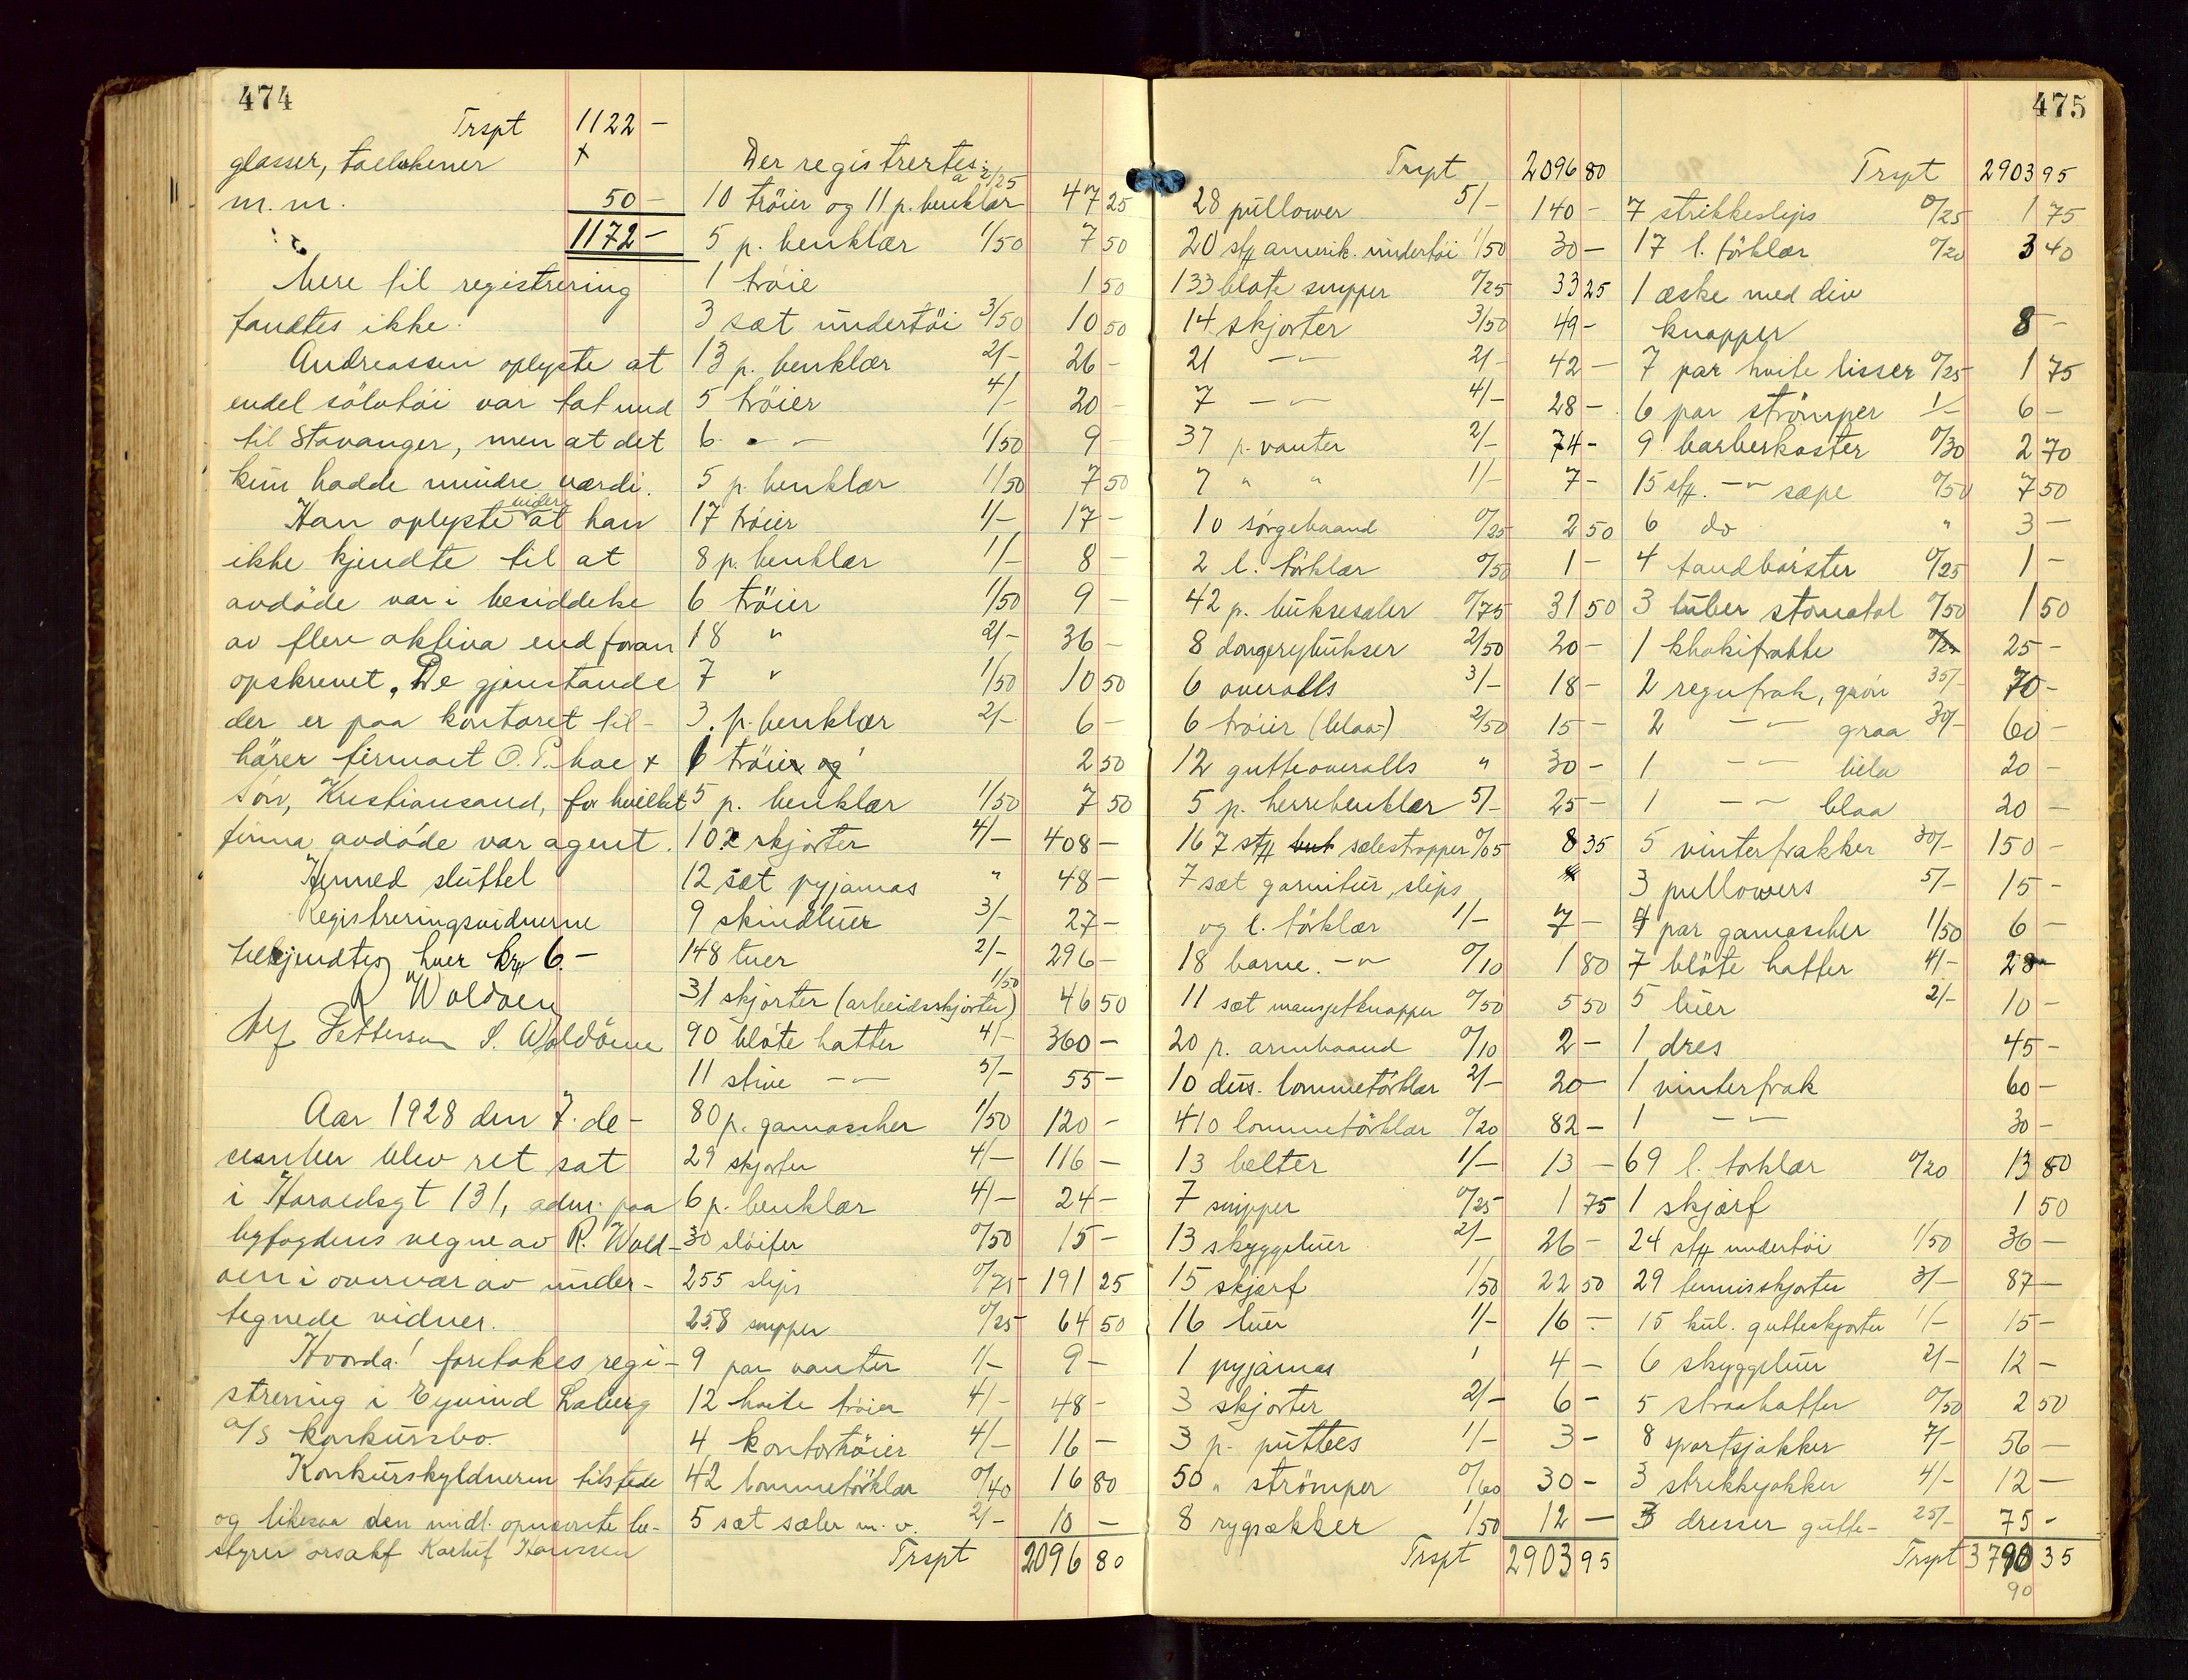 474
Trspt 1122 -
glasser,
m. m. 50 -
1172 -
Mere til registrering
fandtes ikke.
Andreassen oplyste at
endel sölvtöi var tat med
til Stavanger, men at det
kun hadde mindre værdi.
Han oplyste videre at han
ikke kjendte til at
avdöde var i besiddelse
av flere aktiva end foran
opskrevet. De gjenstande
der er paa kontoret til-
hörer firmaet O. P. Moe &
sön, Kristiansand, for hvilket
firma avdöde var agent.
Hermed sluttet
Registreringsvidnerne
tilkjendtes hver kr. 6.-
R Woldöen
Alf Pettersen S. Woldöen
Aar 1928 den 7. de-
cember blev ret sat
i Haraldsgt 131, adm. paa
byfogdens vegne av R. Wold-
öen i overvær av under-
tegnede vidner.
Hvorda! foretokes regi-
strering i Eyvind Loberg
a/s konkursbo.
Konkursskyldneren tilstede
og likesaa den midl. opnævnte be-
styrer orsakf
Der registrertes:
10 tröier og 11 p. benklær a 2/25 47 25
5 p. benklær 1/50 7 50
1 tröie 1 50
3 sæt undertöi 3/50 10 50
13 p. benklær 2/- 26 -
5 tröier 4/- 20 -
6 - - 1/50 9 -
5 p. benklær 1/50 7 50
17 tröier 1/- 17 -
8 p. benklær 1/- 8 -
6 tröier 1/50 9 -
18 " 2/- 36 -
7 " 1/50 10 50
3 p. benklær 2/- 6 -
1 tröie 2 50
5 p. benklær 1/50 7 50
102 skjorter 4/- 408 -
12 sæt pyjamas " 48 -
9 skindluer 3/- 27 -
148 luer 2/- 296 -
31 skjorter (arbeidsskjorter) 1/50 46 50
90 blöte hatter 4/- 360 -
11 stive - " - 5/- 55 -
80 p. gamascher 1/50 120 -
29 skjorter 4/- 116 -
6 p. benklær 4/- 24 -
30 slöifer 0/50 15 -
255 slips 0/75 191 25
258 snipper 0/25 64 50
9 par vanter 1/- 9 -
12 hvite tröier 4/- 48 -
4 kontortröier 4/- 16 -
42 lommetörklær 0/40 16 80
5 sæt sæler m. v. 2/- 10 -
Trspt 2096 80
475
Trspt 2096 80
28 pullower 5/- 140 -
20 stk amerik. undertöi 1/50 30 -
133 bløte snipper 0/25 33 25
14 skjorter 3/50 49 -
21 - " - 2/- 42 -
7 - " - 4/- 28 -
37 p. vanter 2/- 74 -
7 " " 1/- 7 -
10 sörgebaand 0/25 2 50
2 l. törklær 0/50 1 -
42 p. buksesæler 0/75 31 50
8 dongerybukser 2/50 20 -
6 overalls 3/- 18 -
6 tröier (blaa-) 2/50 15 -
12 gutteoveralls " 30 -
5 p. herrebenklær 5/- 25 -
167 stk sælestropper 0/05 8 35
7 sæt garnitur, slips
og l. törklær 1/- 7 -
18 barne - " - 0/10 1 80
11 sæt mansjetknapper 0/50 5 50
20 p. armbaand 0/10 2 -
10 dus. lommetörklær 2/- 20 -
410 lommetörklær 0/20 82 -
13 belter 1/- 13 -
7 snipper 0/25 1 75
13 skyggeluer 2/- 26 -
15 skjærf 1/50 22 50
16 luer 1/- 16 -
1 pyjamas 4 -
3 skjorter 2/- 6 -
3 p. puttees 1/- 3 -
50 " strömper 0/60 30 -
8 rygsækker 1/50 12 -
Trspt 2903 95
Trspt 2903 95
7 strikkeslips 0/25 1 75
17 l. törklær 0/20 3 40
1 æske med div
knapper 8 -
7 par hvite lisser 0/25 1 75
6 par strömper 1/- 6 -
9 barberkoster 0/30 2 70
15 stk. - " - sæpe 0/50 7 50
6 do " 3 -
4 tandbörster 0/25 1 -
3 tuber stomatol 0/50 1 50
1 khakifrakke 25 -
2 regnfrak, grön 35/- 70 -
2 - " - graa 30/- 60 -
1 - " - lila 20 -
1 - " - blaa 20 -
5 vinterfrakker 30/- 150 -
3 pullowers 5/- 15 -
4 par gamascher 1/50 6 -
7 blöte hatter 4/- 28 -
5 luer 2/- 10 -
1 dres 45 -
1 vinterfrak 60 -
1 - " - 30 -
69 l. törklær 0/20 13 80
1 skjærf 1 50
24 stk undertöi 1/50 36 -
29 tennisskjorter 3/- 87 -
15 kul. gutteskjorter 1/- 15 -
6 skyggeluer 2/- 12 -
5 straahatter 0/50 2 50
8 sportsjakker 7/- 56 -
3 strikkejakker 4/- 12 -
3 dresser gutte- 25/- 75 -
Trspt 3790 35
90